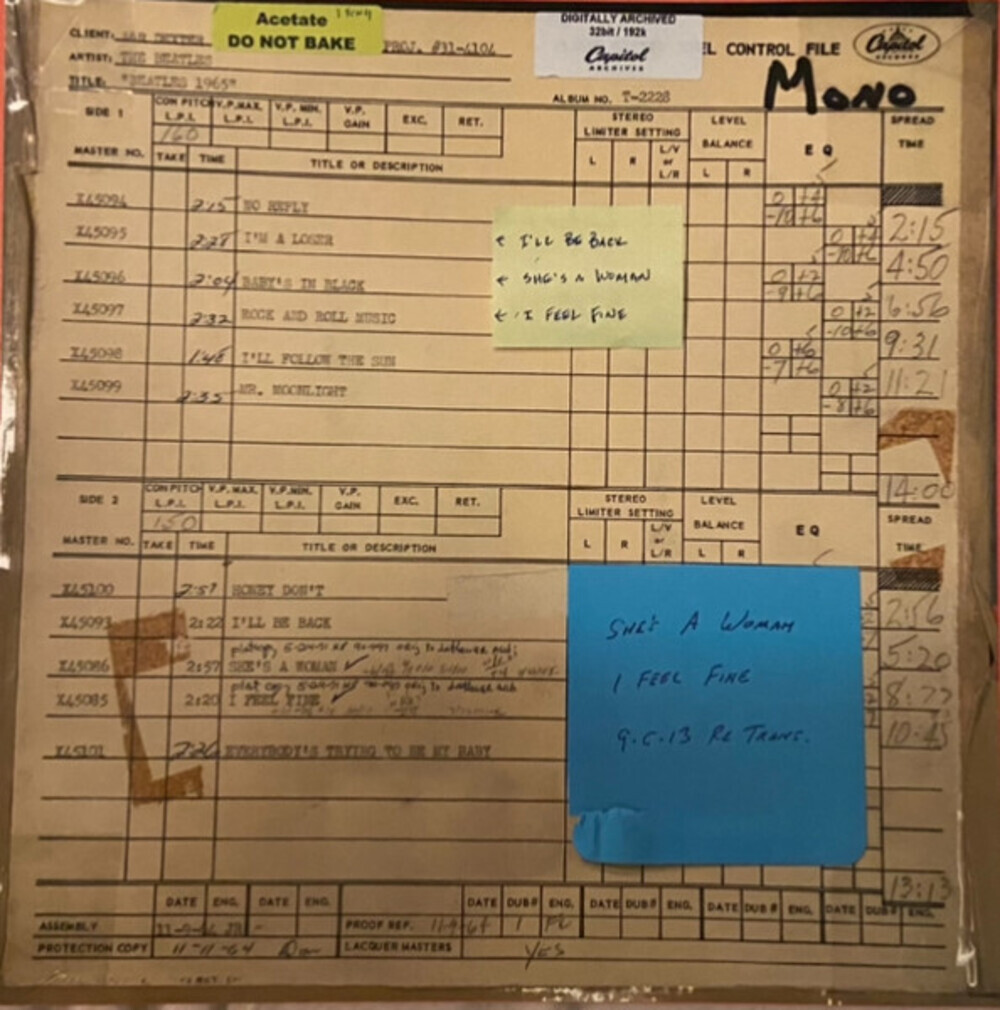 Acetate
DO NOT BAKE
DIGITALLY ARCHIVED
32bit / 192k
Capitol
ARCHIVES
CLIENT: DEXTER
PROJ. #31-4104
L CONTROL FILE
Capitol
RECORDS
ARTIST: THE BEATLES
TITLE: "BEATLES 1965"
ALBUM NO. T-2228
MONO
SIDE 1 CON PITCH L.P.I. V.P. MAX. L.P.I. V.P. MIN. L.P.I. V.P. GAIN EXC. RET. STEREO LIMITER SETTING LEVEL BALANCE E Q SPREAD TIME
160
MASTER NO. TAKE TIME TITLE OR DESCRIPTION L R L/V or L/R L R
X45094 2:15 NO REPLY 0 +4 -10 +6 2:15
X45095 2:28 I'M A LOSER 4:50
← I'LL BE BACK
X45096 2:04 BABY'S IN BLACK 0 +2 -9 +6 6:56
← SHE'S A WOMAN
X45097 2:32 ROCK AND ROLL MUSIC 0 +2 -10 +6 9:31
← I FEEL FINE
X45098 1:46 I'LL FOLLOW THE SUN 0 +6 -7 +6 11:21
X45099 2:35 MR. MOONLIGHT 0 +2 -8 +6
14:00
SIDE 2 CON PITCH L.P.I. V.P. MAX. L.P.I. V.P. MIN. L.P.I. V.P. GAIN EXC. RET. STEREO LIMITER SETTING LEVEL BALANCE E Q SPREAD TIME
150
MASTER NO. TAKE TIME TITLE OR DESCRIPTION L R L/V or L/R L R
X45100 2:57 HONEY DON'T 2:56
X45093 2:22 I'LL BE BACK 5:20
X45086 2:57 SHE'S A WOMAN ✓
X45085 2:20 I FEEL FINE ✓ 10:45
X45101 EVERYBODY'S TRYING TO BE MY BABY
SHE'S A WOMAN
I FEEL FINE
9.6.13 RE TRANS.
13:13
DATE ENG. DATE ENG. DATE DUB# ENG. DATE DUB# ENG. DATE DUB# ENG. DATE DUB# ENG.
ASSEMBLY 11-9-64 PROOF REF. 11-9-64 1
PROTECTION COPY 11-11-64 LACQUER MASTERS YES